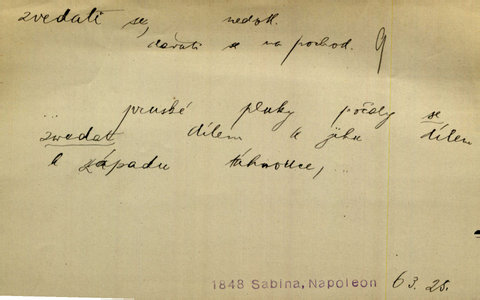 zvedati se, nedok.
dávati se na pochod. 9
... pruské pluky počaly se
zvedat dílem k jihu dílem
k západu táhnouce, ...
1848 Sabina, Napoleon 63. 25.